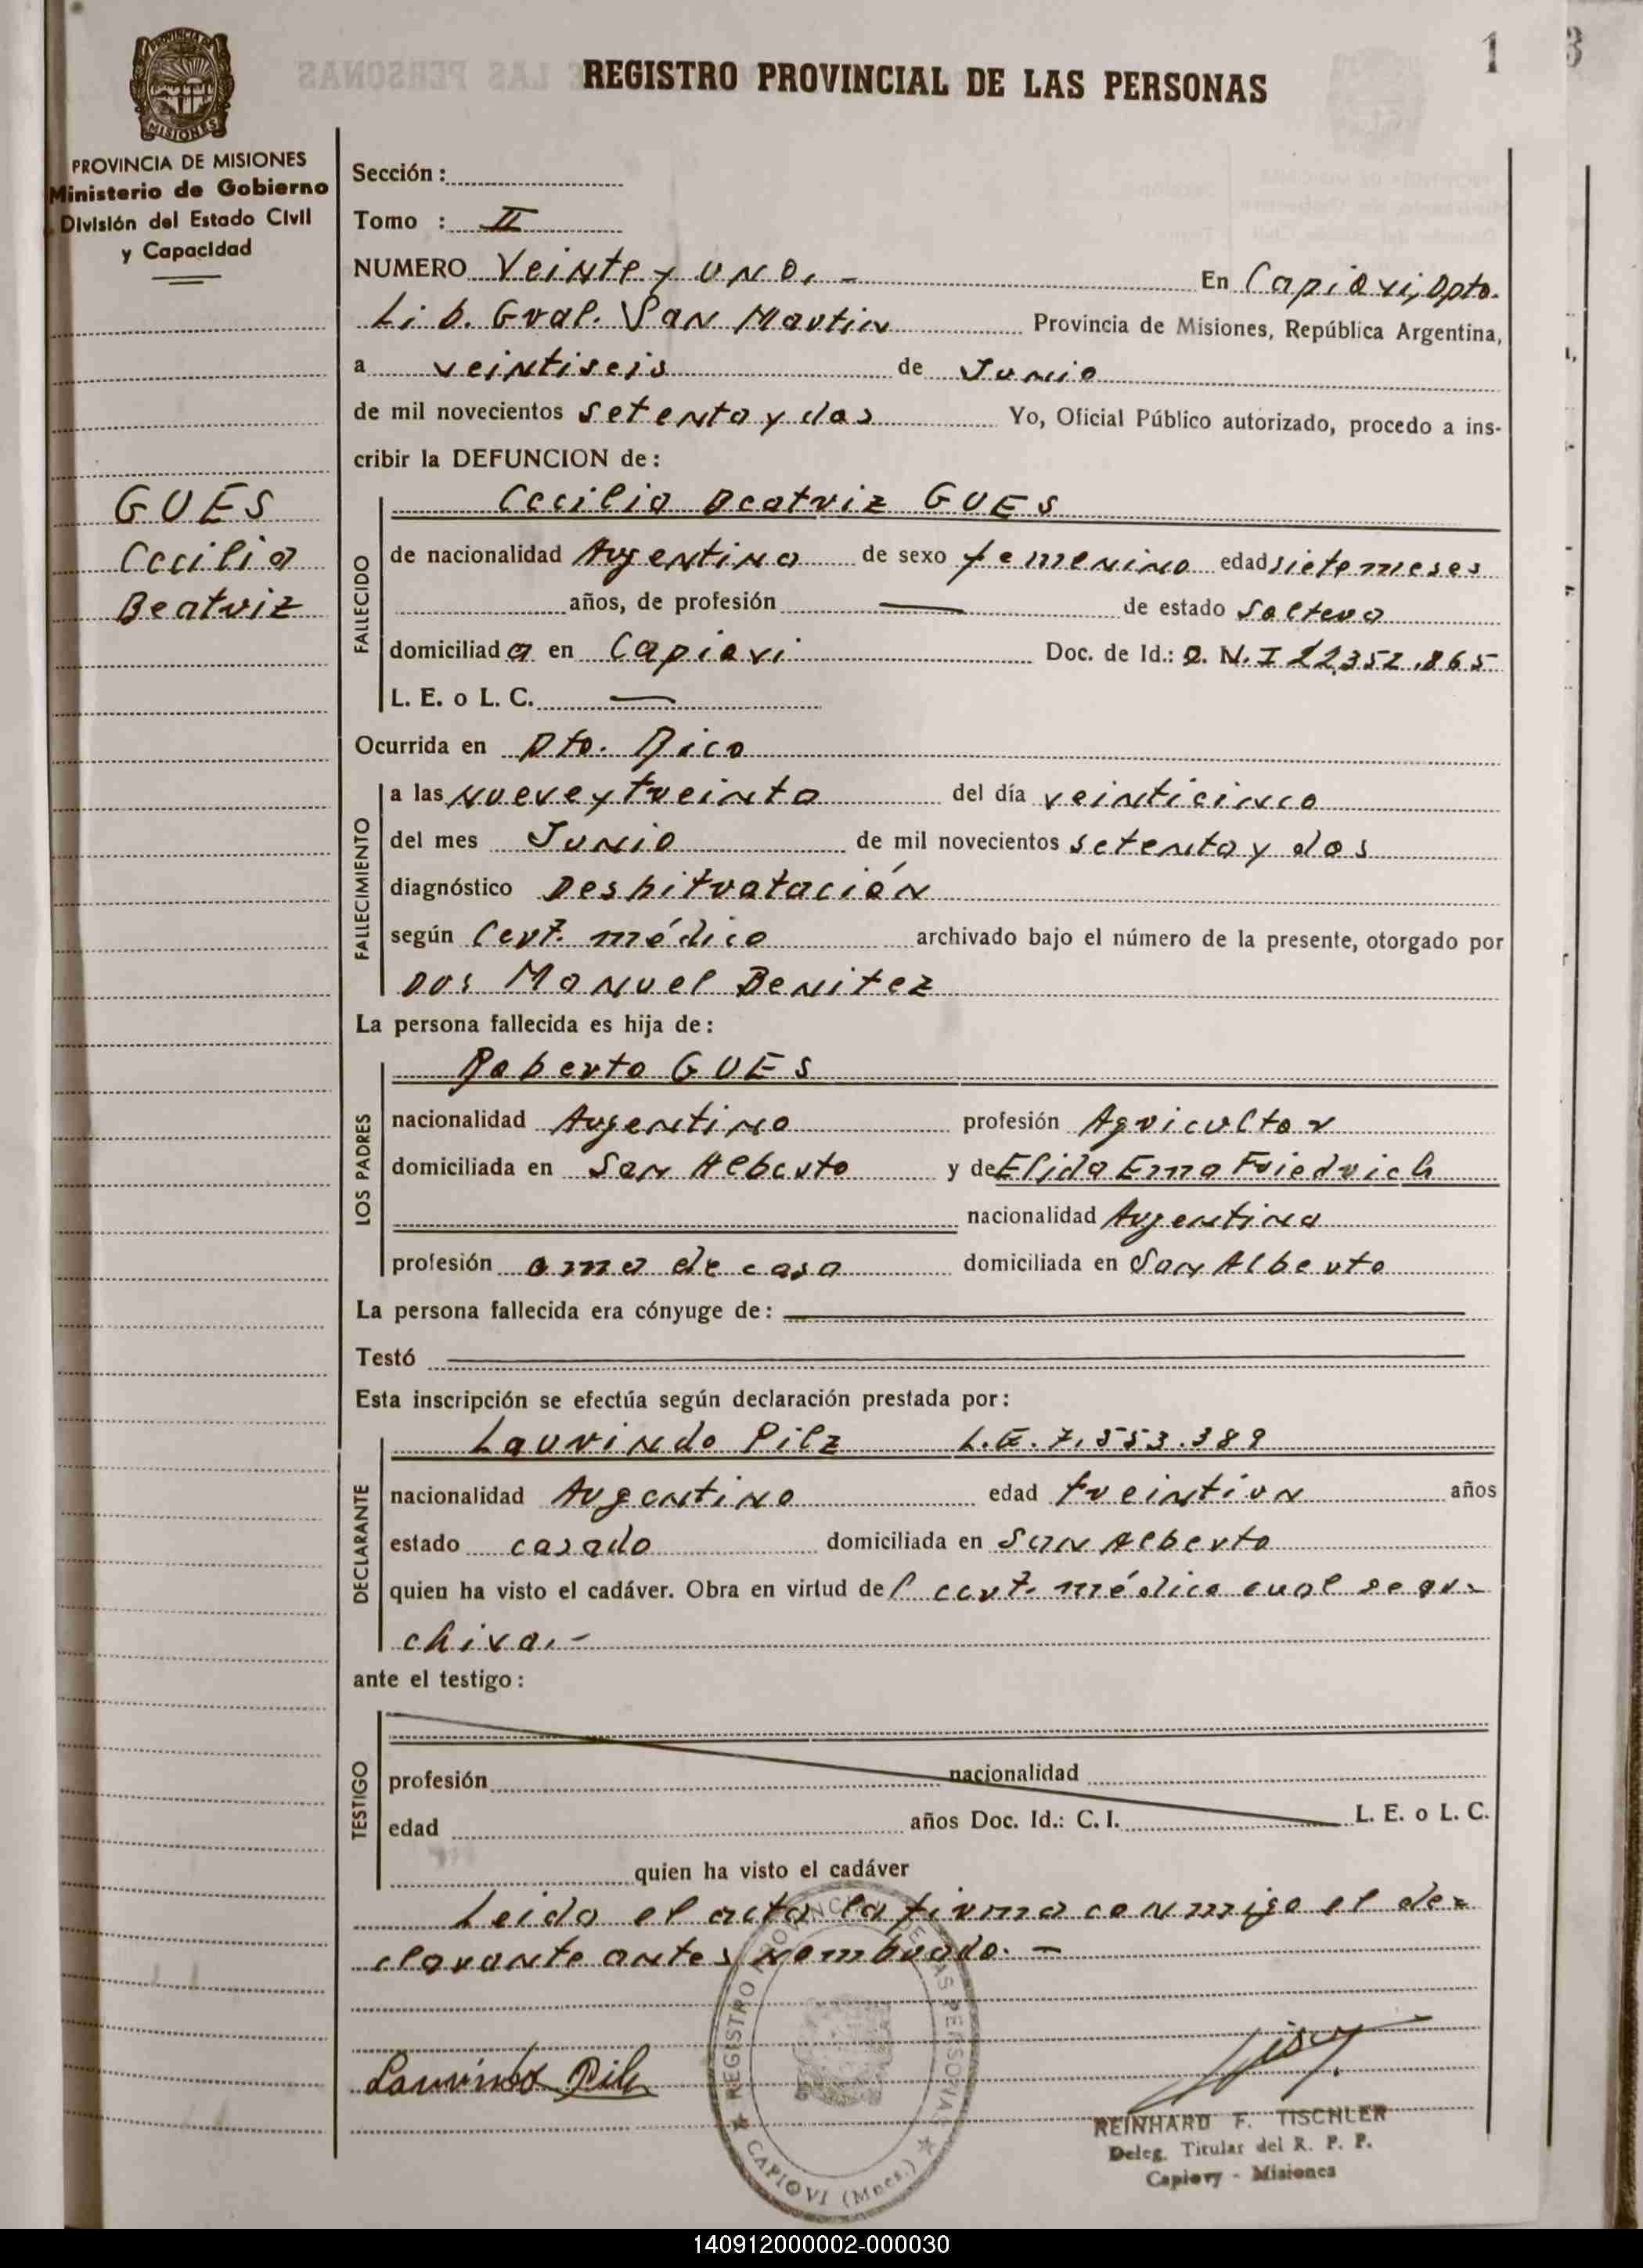 1
REGISTRO PROVINCIAL DE LAS PERSONAS
PROVINCIA DE MISIONES
MISIONES
PROVINCIA DE MISIONES
Ministerio de Gobierno
División del Estado Civil
y Capacidad
GUES
Cecilia
Beatriz
Sección :
Tomo : II
NUMERO Veinte y uno. - En Capiovi, Dpto.
Lib. Gral. San Martin Provincia de Misiones, República Argentina,
a veintiseis de Junio
de mil novecientos setenta y dos Yo, Oficial Público autorizado, procedo a ins-
cribir la DEFUNCION de :
FALLECIDO
Cecilia Beatriz GUES
de nacionalidad Argentina de sexo femenino edad siete meses
años, de profesión — de estado soltera
domiciliad a en Capiovi Doc. de Id.: D.N.I 22.352.865
L. E. o L. C. —
Ocurrida en Pto. Rico
FALLECIMIENTO
a las nueve y treinta del día veinticinco
del mes Junio de mil novecientos setenta y dos
diagnóstico Deshitratación
según Cert. médico archivado bajo el número de la presente, otorgado por
Manuel Benitez
La persona fallecida es hija de :
LOS PADRES
Roberto GUES
nacionalidad Argentino profesión Agricultor
domiciliada en San Alberto y de Elida Erna Friedrich
nacionalidad Argentina
profesión ama de casa domiciliada en San Alberto
La persona fallecida era cónyuge de :
Testó
Esta inscripción se efectúa según declaración prestada por :
DECLARANTE
Laurindo Pilz L.E. 7.553.389
nacionalidad Argentino edad treintiun años
estado casado domiciliada en San Alberto
quien ha visto el cadáver. Obra en virtud de l cert. médico cual se ar-
chiva. -
ante el testigo :
TESTIGO
profesión nacionalidad
edad años Doc. Id.: C. I. L. E. o L. C.
quien ha visto el cadáver
Leida el acta la firma conmigo el de=
clarante antes nombrado. -
REGISTRO PROVINCIAL DE LAS PERSONAS
CAPIOVI (Mnes.)
Laurindo Pilz
REINHARD F. TISCHLER
Deleg. Titular del R. P. P.
Capiovy - Misiones
140912000002-000030